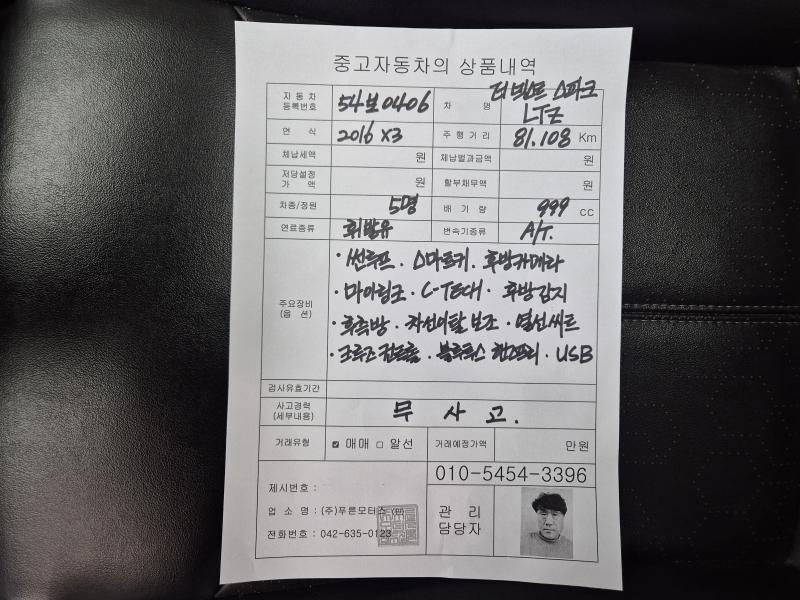 중고자동차의 상품내역
자동차 등록번호 54보0406 차 명 더넥스트 스파크 LTZ
연 식 2016 X3 주행거리 81.108 Km
체납세액 원 체납벌과금액 원
저당설정 가 액 원 할부채무액 원
차종/정원 5명 배 기 량 999 CC
연료종류 휘발유 변속기종류 A/T.
주요장비 (옵 션)
·썬루프. 스마트키. 후방카메라
·마이링크·C-TECH·후방감지
·후측방·차선이탈 보조·열선씨트
·크루즈 컨트롤·블루투스 핸즈프리·USB
검사유효기간
사고경력 (세부내용) 무 사 고.
거래유형 ☑ 매매 □ 알선 거래예정가액 만원
010-5454-3396
제시번호 :
업 소 명 : (주)푸른모터스 (인)
전화번호 : 042-635-0123
관 리 담당자